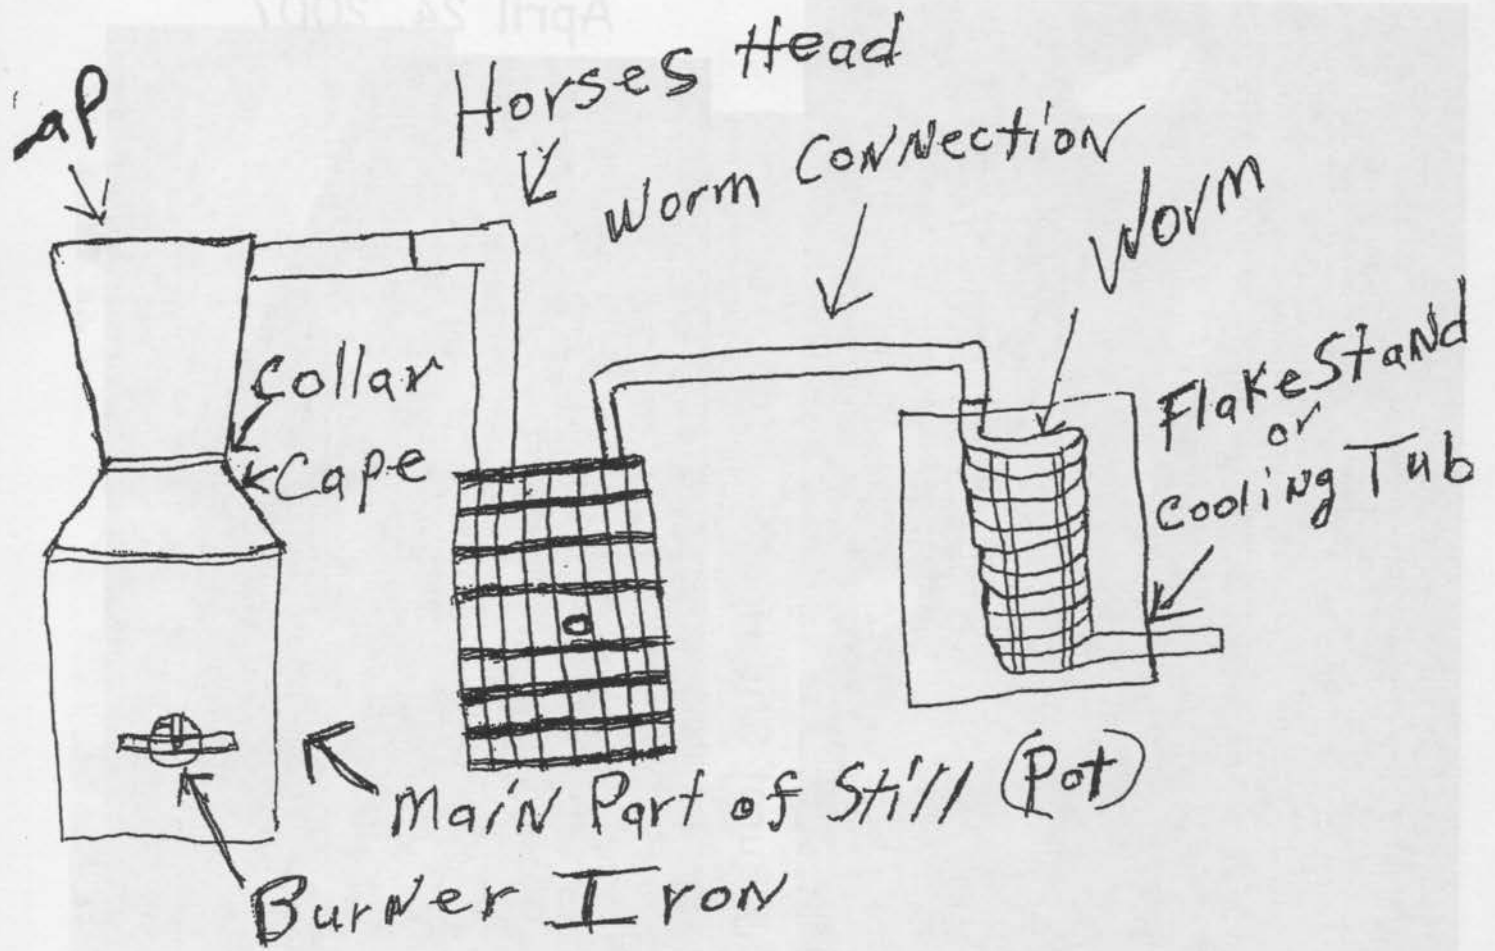 April 24, 2007
aP
Horses Head
Worm Connection
Worm
Collar
Cape
Flake Stand
or
Cooling Tub
Main Part of Still (Pot)
Burner Iron